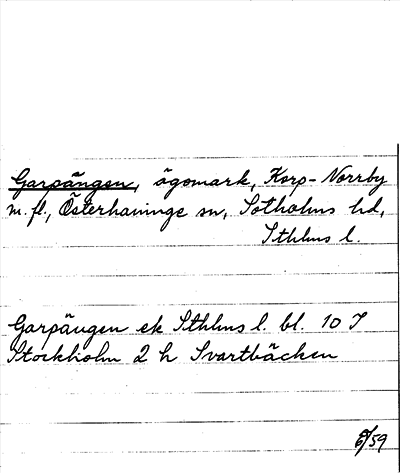 Garpängen, ägomark, Korp-Norrby
m.fl., Österhaninge sn, Sotholms hd,
Sthlms l.
Garpängen ek Sthlms l. bl. 10 J
Stockholm 2 h Svartbäcken
6/59